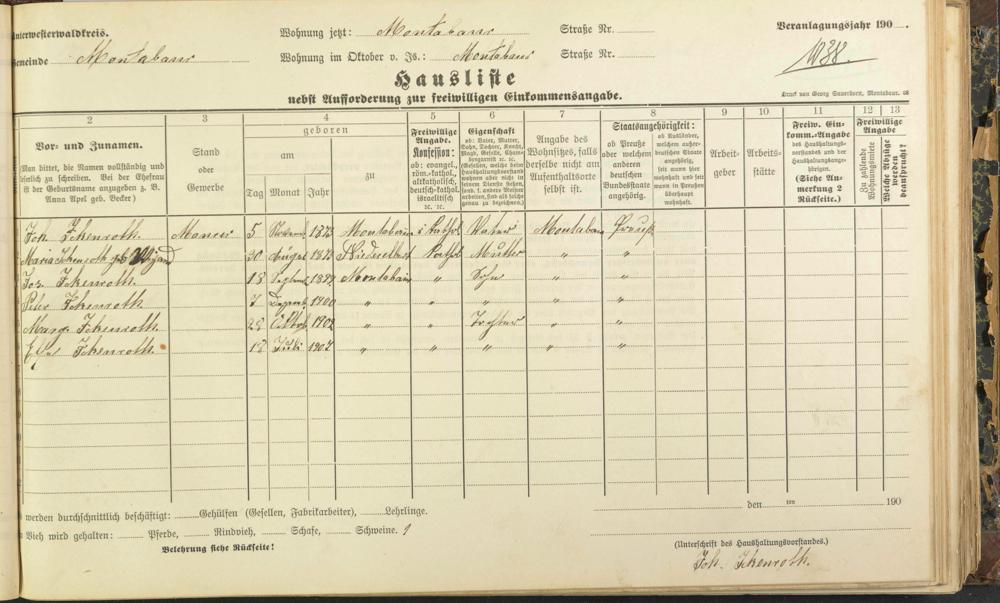 Unterwesterwaldkreis. Wohnung jetzt: Montabaur Straße Nr. Veranlagungsjahr 190 .
Gemeinde Montabaur Wohnung im Oktober v. Js.: Montabaur Straße Nr.
Hausliste
Druck von Georg Sauerborn, Montabaur.
nebst Aufforderung zur freiwilligen Einkommensangabe.
2 3 4 5 6 7 8 9 10 11 12 13
Vor- und Zunamen.
Man bittet, die Namen vollständig und
zu schreiben. Bei der Ehefrau
ist der Geburtsname anzugeben z. B.
Anna Apel geb. Becker)
Stand
oder
Gewerbe
geboren
am
Tag Monat Jahr
zu
Freiwillige
Angabe.
Konfession:
ob: evangel.,
röm.-kathol.,
altkatholisch,
deutsch-kathol.
israelitisch
ꝛc. ꝛc.
Eigenschaft
ob: Vater, Mutter,
Sohn, Tochter, Knecht,
Magd, Geselle,
Angabe des
Wohnsitzes, falls
derselbe nicht am
Aufenthaltsorte
selbst ist.
Staatsangehörigkeit:
ob Preuße
oder welchem
anderen
deutschen
Bundesstaate
angehörig.
ob Ausländer,
welchem außer-
deutschen Staate
angehörig,
seit wann hier
wohnhaft und seit
wann in Preußen
überhaupt
wohnhaft.
Arbeit-
geber
Arbeits-
stätte
Freiw. Ein-
komm.-Angabe
des Haushaltungs-
vorstandes und der
Haushaltungsange-
hörigen.
(Siehe An-
merkung 2
Rückseite.)
Freiwillige
Angabe
Zu zahlende
Wohnungsmiete
Welche Abzüge
werden
beansprucht?
Joh. Ickenroth Maurer 5 1873 Montabaur Kathol Vater Montabaur Preuß
Maria Ickenroth geb. 30 August Kathol Mutter " "
Jos. Ickenroth 18 Montabaur " Sohn " "
Ickenroth 7 1900 " " " "
Marg. Ickenroth 1902 " " Tochter " "
Ickenroth 18 Juli 1907 " " " " "
werden durchschnittlich beschäftigt: Gehülfen (Gesellen, Fabrikarbeiter), Lehrlinge.
den ten 190
Vieh wird gehalten: Pferde, Rindvieh, Schafe, Schweine. 1
Belehrung siehe Rückseite!
(Unterschrift des Haushaltungsvorstandes.)
Joh. Ickenroth.